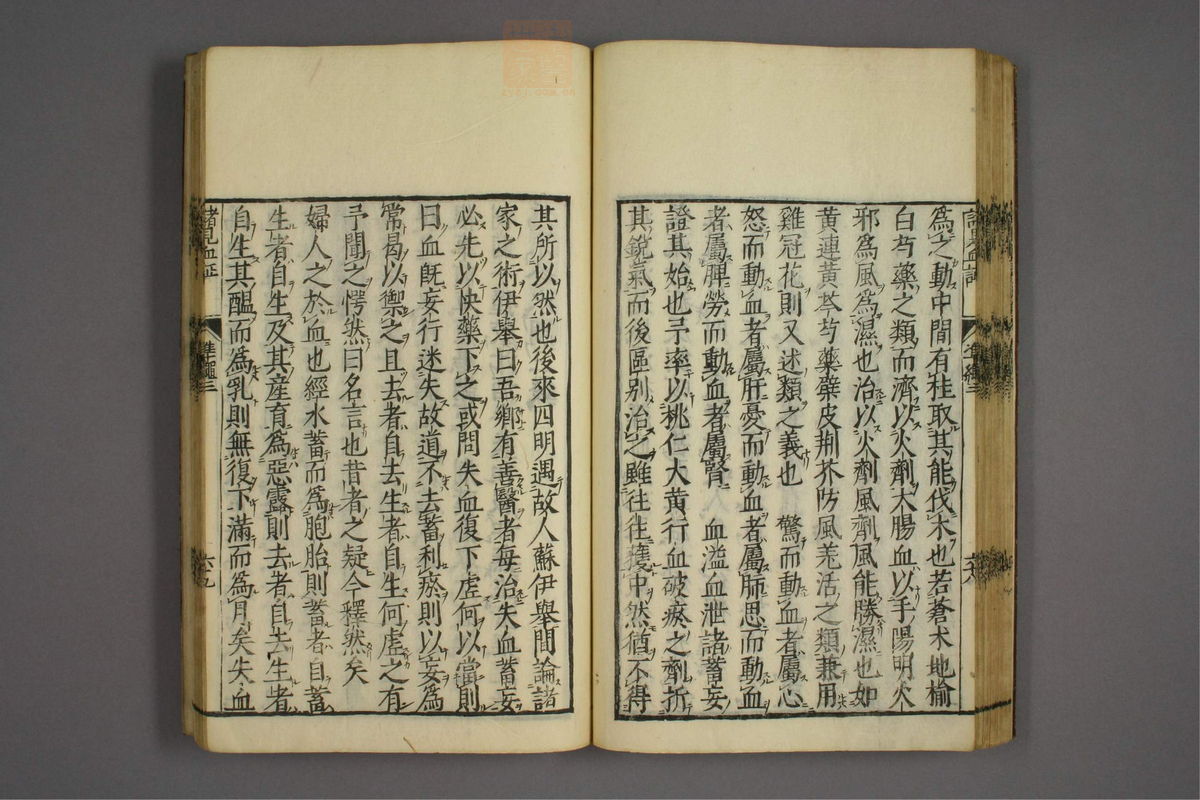 為之動中間有桂取其能伐木也若蒼朮地榆
白芍藥之類而濟以火劑大腸血以手陽明火
邪為風為濕也治以火劑風劑風能勝濕也如
黃連黃芩芍藥蘗皮荆芥防風羌活之類兼用
雞冠花則又述類之義也 驚而動血者屬心
怒而動血者屬肝憂而動血者屬肺思而動血
者屬脾勞而動血者屬腎 血溢血泄諸蓄妄
證其始也予率以桃仁大黃行血破瘀之劑折
其銳氣而後區別治之雖往往獲中然猶不得
其所以然也後來四明遇故人蘇伊舉間論諸
家之術伊舉曰吾鄉有善醫者每治失血蓄妄
必先以快藥下之或問失血復下虛何以當則
曰血既妄行迷失故道不去蓄利瘀則以妄為
常曷以禦之且去者自去生者自生何虛之有
予聞之愕然曰名言也昔者之疑今釋然矣
婦人之於血也經水蓄而為胞胎則蓄者自蓄
生者自生及其產育為惡露則去者自去生者
自生其醞而為乳則無復下滿而為月矣失血
諸見血証
準繩三
六九